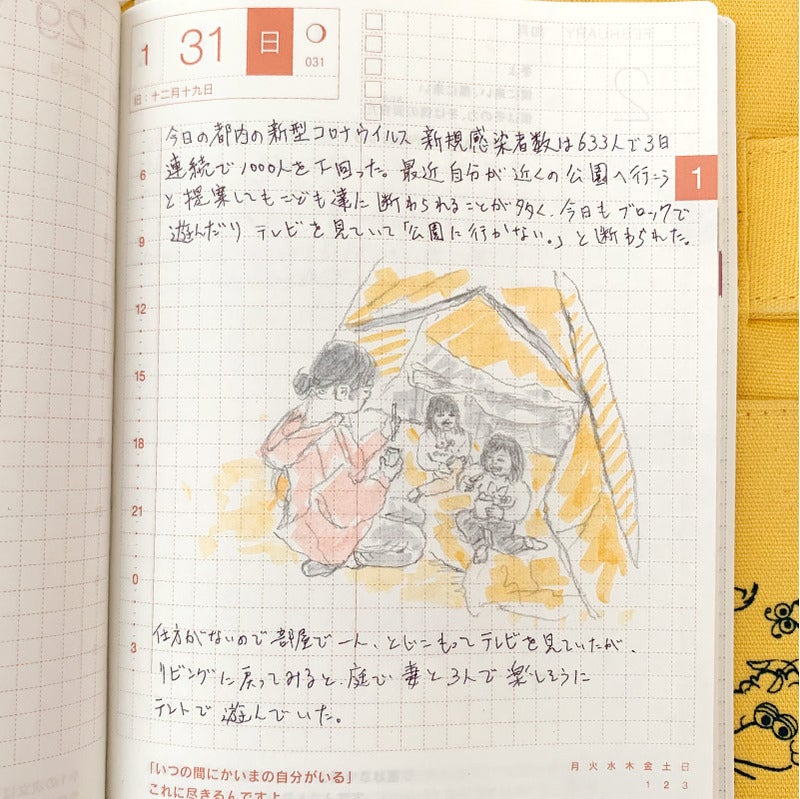 1 31 日
031
旧：十二月十九日
今日の都内の新型コロナウイルス 新規感染者数は633人で3日
連続で1000人を下回った。最近自分が近くの公園へ行こう
と提案してもこども達に断わられることが多く、今日もブロックで
遊んだり テレビを見ていて「公園に行かない。」と断わられた。
1
6
9
12
15
18
21
0
3
仕方がないので部屋で一人、とじこもってテレビを見ていたが、
リビングに戻ってみると、庭で妻と3人で楽しそうに
テントで遊んでいた。
「いつの間にかいまの自分がいる」
これに尽きるんですよ
月 火 水 木 金 土 日
1 2 3